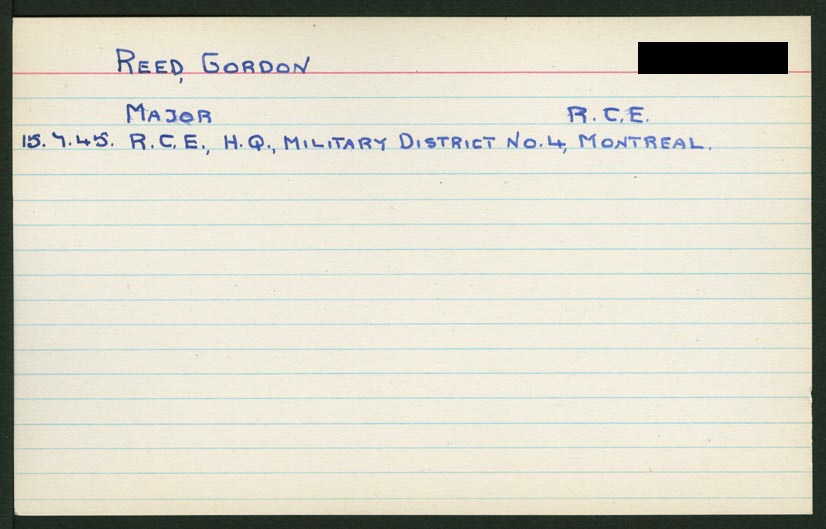 REED, GORDON
MAJOR R.C.E.
15.7.45. R.C.E., H.Q., MILITARY DISTRICT NO.4, MONTREAL.